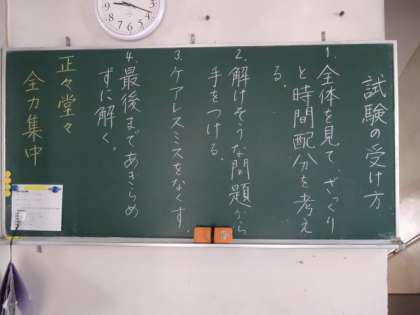 試験の受け方
1. 全体を見て、ざっくり
と時間配分を考え
る。
2. 解けそうな問題から
手をつける。
3. ケアレスミスをなくす。
4. 最後まであきらめ
ずに解く。
正々堂々
全力集中